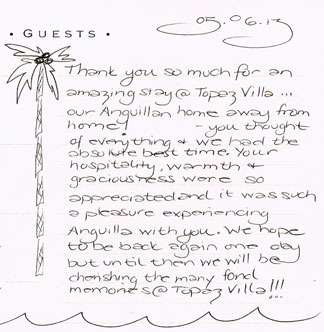 05.06.13
• GUESTS •
Thank you so much for an
amazing stay @ Topaz Villa ...
our Anguillan home away from
home! - you thought
of everything & we had the
absolute best time. Your
hospitality, warmth &
graciousness were so
appreciated and it was such
a pleasure experiencing
Anguilla with you. We hope
to be back again one day
but until then we will be
cherishing the many fond
memories @ Topaz Villa!!!